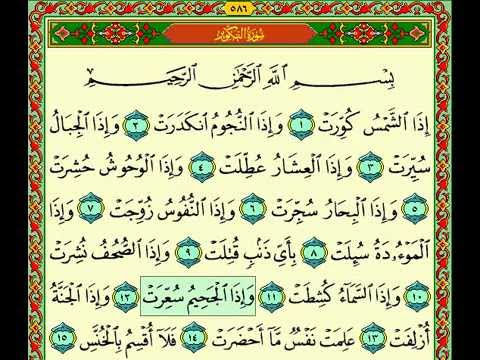 ٥٨٦
سُورَةُ التَّكْوِيرِ
بِسْمِ اللَّهِ الرَّحْمَٰنِ الرَّحِيمِ
إِذَا الشَّمْسُ كُوِّرَتْ ١ وَإِذَا النُّجُومُ انكَدَرَتْ ٢ وَإِذَا الْجِبَالُ
سُيِّرَتْ ٣ وَإِذَا الْعِشَارُ عُطِّلَتْ ٤ وَإِذَا الْوُحُوشُ حُشِرَتْ
٥ وَإِذَا الْبِحَارُ سُجِّرَتْ ٦ وَإِذَا النُّفُوسُ زُوِّجَتْ ٧ وَإِذَا
الْمَوْءُدَةُ سُئِلَتْ ٨ بِأَيِّ ذَنۢبٍ قُتِلَتْ ٩ وَإِذَا الصُّحُفُ نُشِرَتْ
١٠ وَإِذَا السَّمَاءُ كُشِطَتْ ١١ وَإِذَا الْجَحِيمُ سُعِّرَتْ ١٢ وَإِذَا الْجَنَّةُ
أُزْلِفَتْ ١٣ عَلِمَتْ نَفْسٌ مَّا أَحْضَرَتْ ١٤ فَلَا أُقْسِمُ بِالْخُنَّسِ ١٥